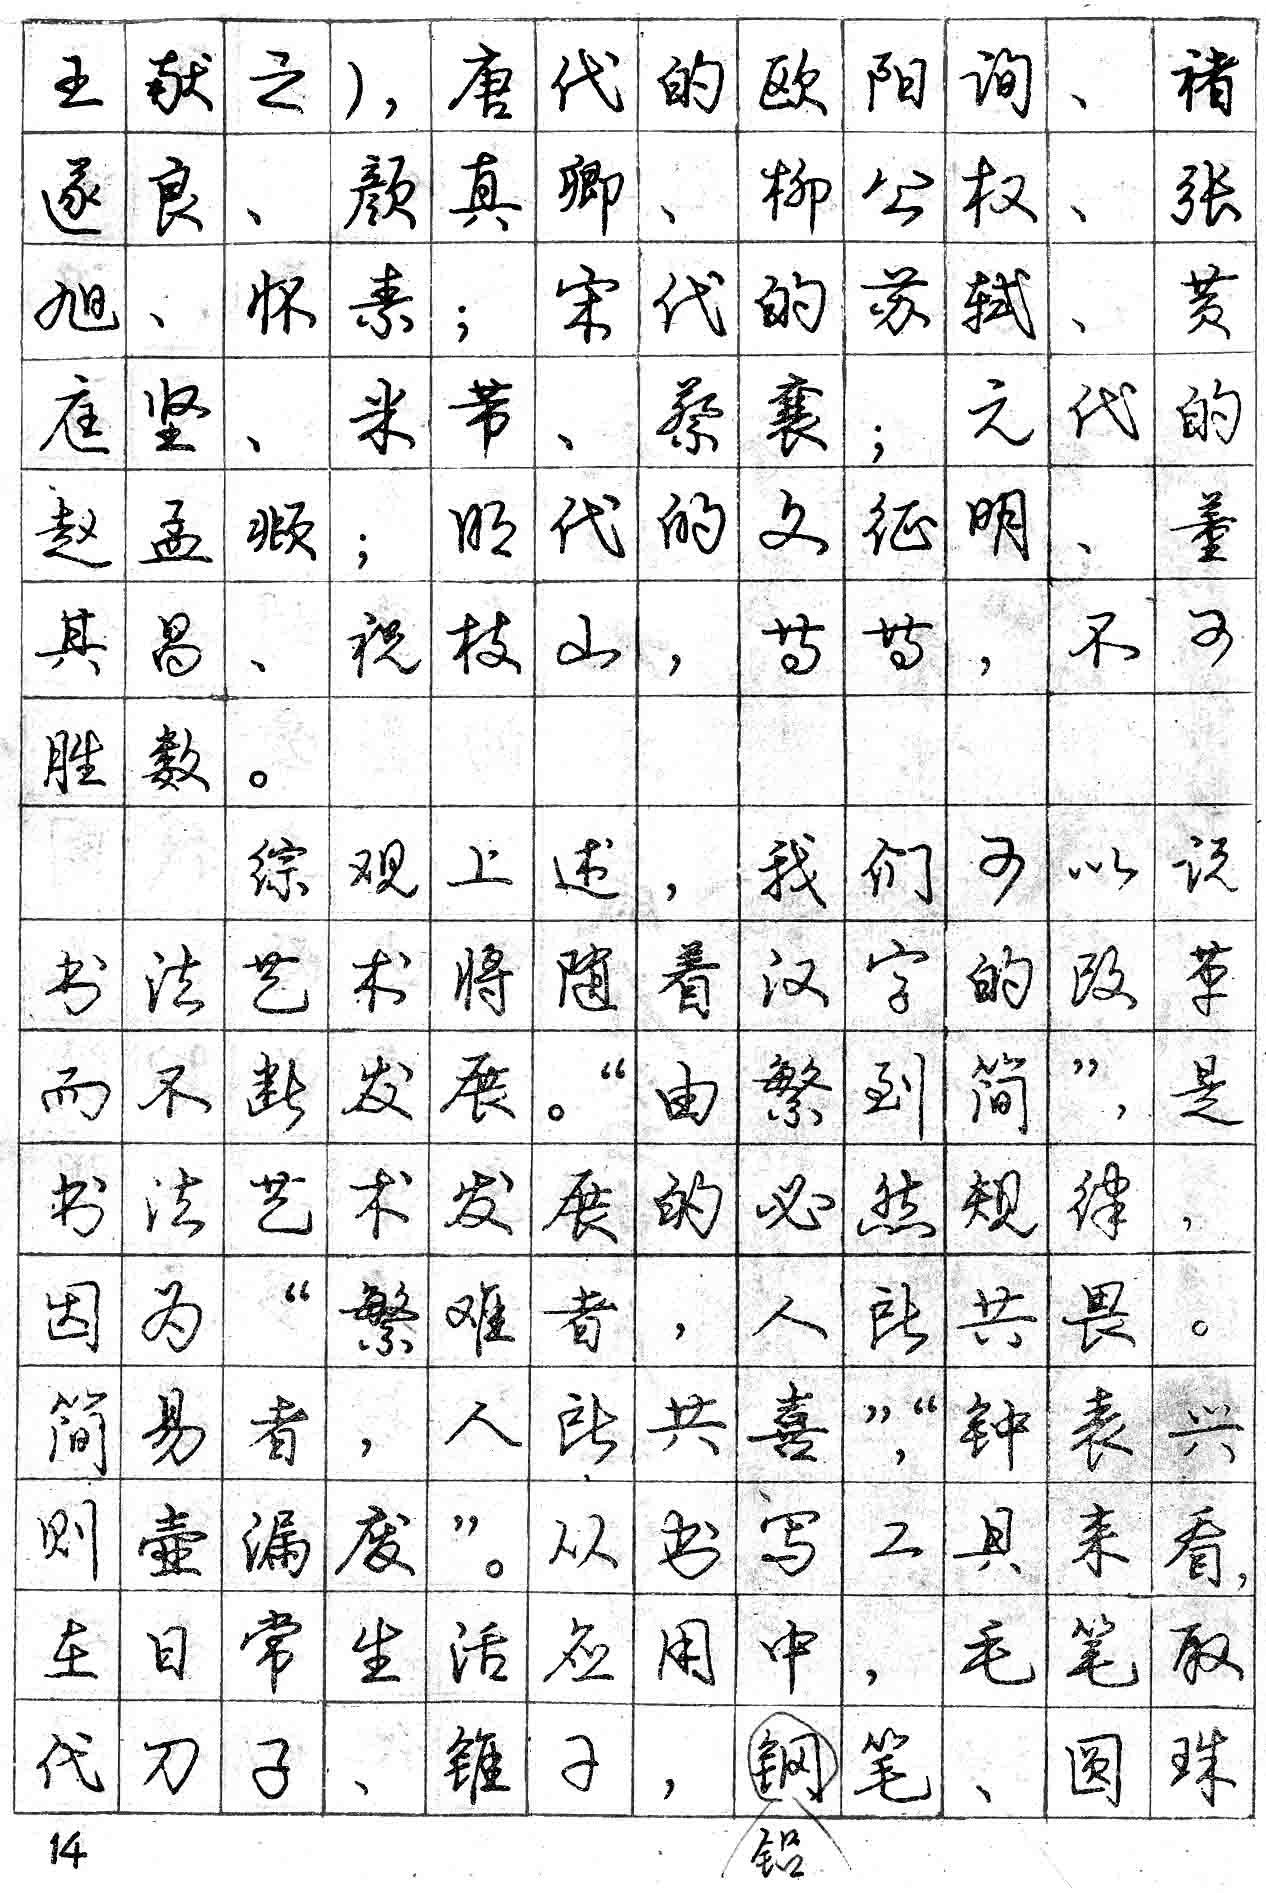 王献之），唐代的欧阳询、褚
遂良、颜真卿、柳公权、张
旭、怀素；宋代的苏轼、黄
庭坚、米芾、蔡襄；元代的
赵孟頫；明代的文征明、董
其昌、祝枝山，等等，不可
胜数。
综观上述，我们可以说
书法艺术将随着汉字的改革
而不断发展。“由繁到简”，是
书法艺术发展的必然规律，
因为“繁难者，人所共畏。
简易者，人所共喜”，“钟表兴
则壶漏废”。从书写工具来看，
在日常生活应用中，毛笔取
代刀子、锥子，钢笔、圆珠
铅
14